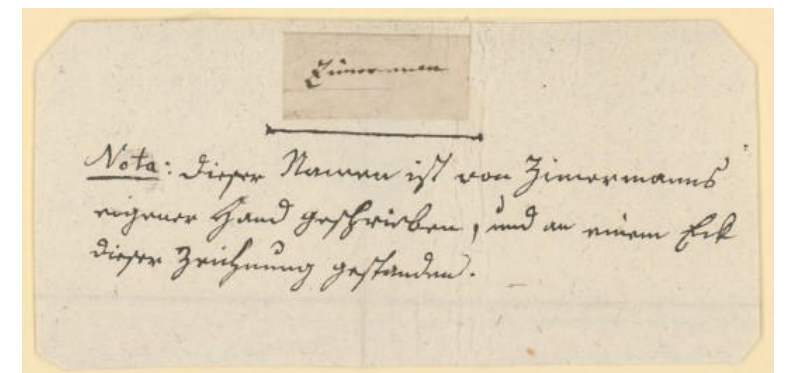 Zimerman
Nota: dieser Namen ist von Zimermanns
eigener Hand geschrieben, und an einem Eck
dieser Zeichnung gestanden.